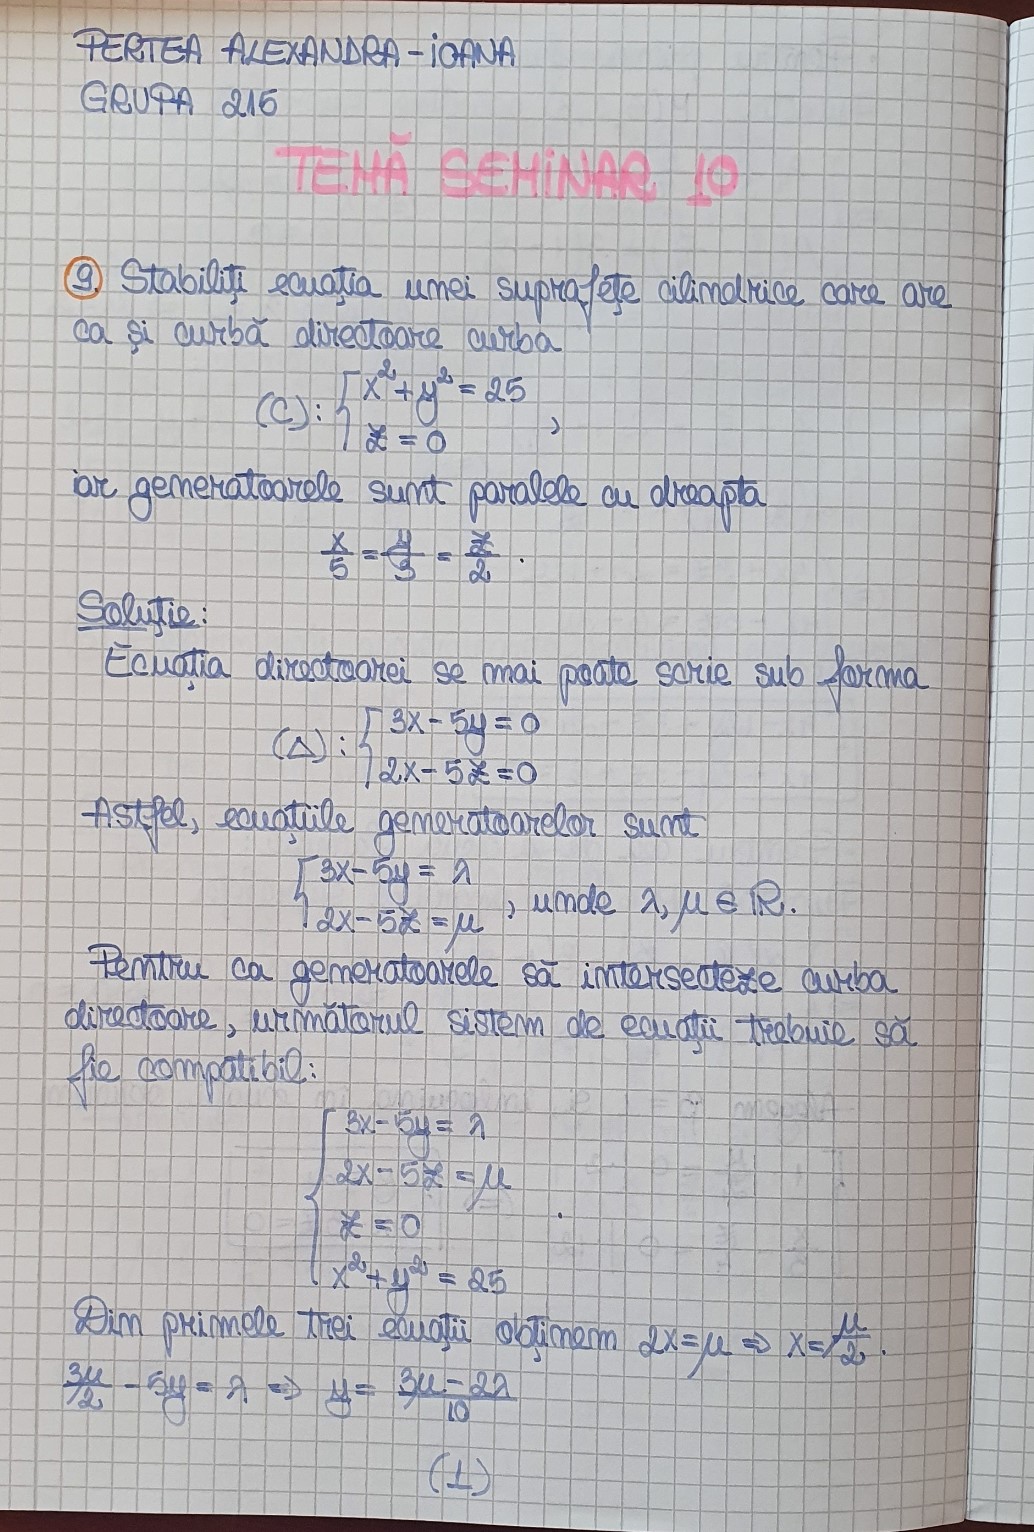 PERTEA ALEXANDRA-IOANA
GRUPA 215
TEMĂ SEMINAR 10
9. Stabiliți ecuația unei suprafețe cilindrice care are
ca și curbă directoare curba
(C): { x² + y² = 25
z = 0 ,
iar generatoarele sunt paralele cu dreapta
x/5 = y/3 = z/2 .
Soluție:
Ecuația directoarei se mai poate scrie sub forma
(Δ): { 3x - 5y = 0
2x - 5z = 0
Astfel, ecuațiile generatoarelor sunt
{ 3x - 5y = λ
2x - 5z = μ , unde λ, μ ∈ ℝ.
Pentru ca generatoarele să intersecteze curba
directoare, următorul sistem de ecuații trebuie să
fie compatibil:
{ 3x - 5y = λ
2x - 5z = μ
z = 0 .
x² + y² = 25
Din primele trei ecuații obținem 2x = μ => x = μ/2.
3μ/2 - 5y = λ => y = (3μ - 2λ)/10
(1)